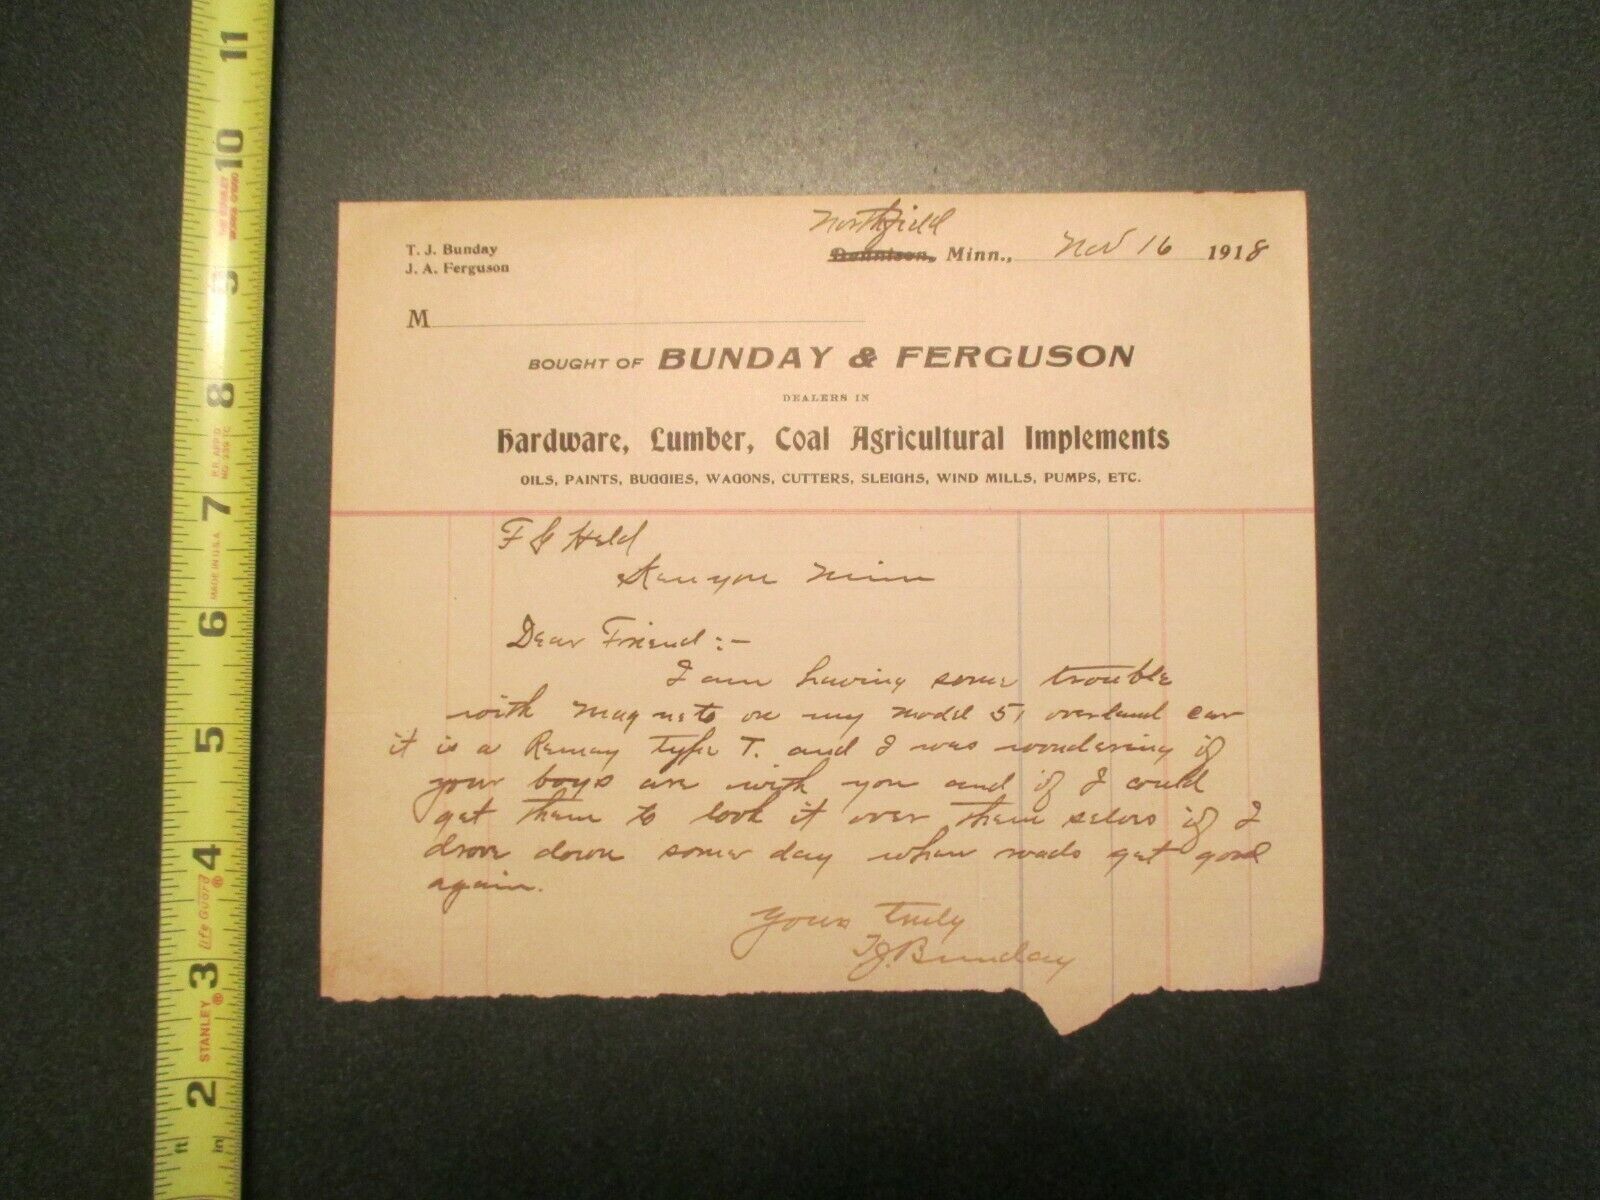 Northfield
T. J. Bunday
J. A. Ferguson
Dennison, Minn., Nov 16 1918
M
BOUGHT OF BUNDAY & FERGUSON
DEALERS IN
Hardware, Lumber, Coal Agricultural Implements
OILS, PAINTS, BUGGIES, WAGONS, CUTTERS, SLEIGHS, WIND MILLS, PUMPS, ETC.
F J Held
Kenyon Minn
Dear Friend:-
I am having some trouble
with Magneto on my Model 51 overland car
it is a Remay type T. and I was wondering if
your boys are with you and if I could
get them to look it over them selvs if I
drove down some day when roads get good
again.
Yours Truly
T.J. Bunday
11
10
9
8
7
6
5
4
3
2
MADE IN U.S.A.
life Guard®
STANLEY®
ft
in